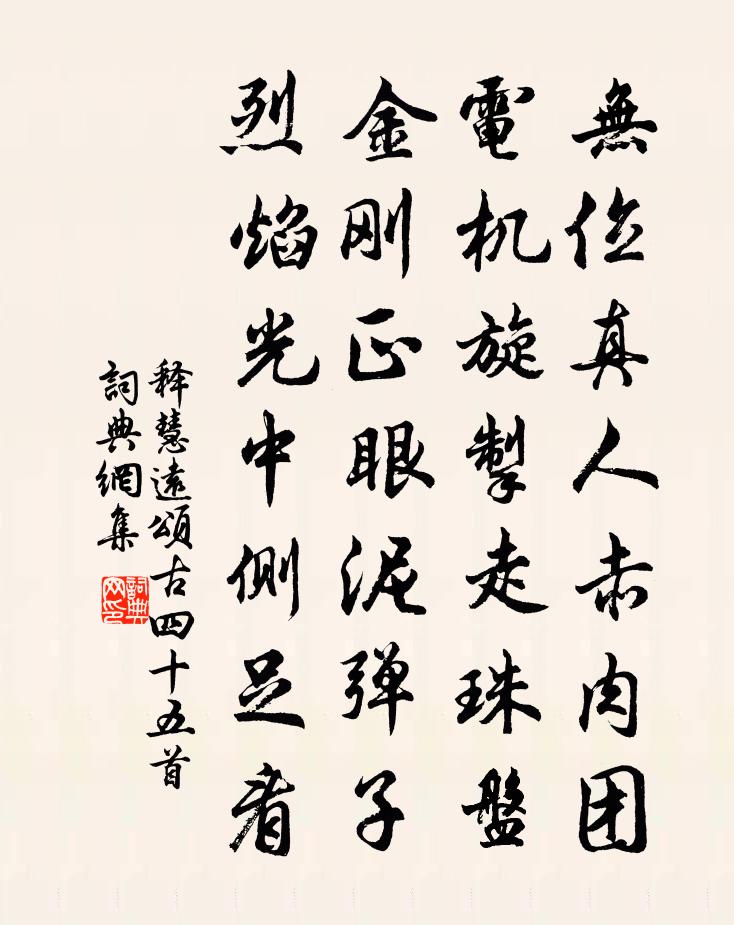 無位真人赤肉团
電机旋掣走珠盤
金刚正眼泥弹子
烈焰光中侧足看
释慧遠頌古四十五首
詞典網集
詞典网印